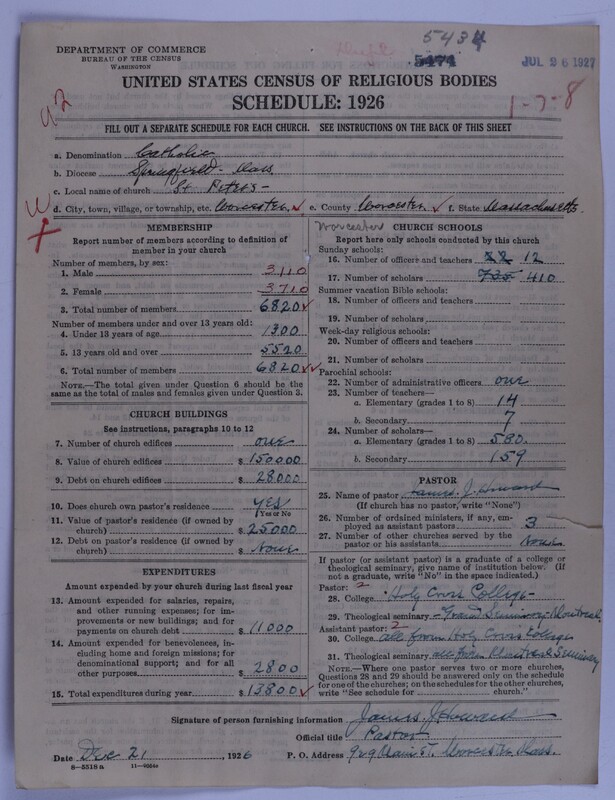 5434
DEPARTMENT OF COMMERCE
BUREAU OF THE CENSUS
WASHINGTON
5474
JUL 26 1927
UNITED STATES CENSUS OF RELIGIOUS BODIES
SCHEDULE: 1926
1-7-8
92
FILL OUT A SEPARATE SCHEDULE FOR EACH CHURCH. SEE INSTRUCTIONS ON THE BACK OF THIS SHEET
a. Denomination Catholic
b. Diocese Springfield - Mass.
c. Local name of church St Peters -
d. City, town, village, or township, etc. Worcester e. County Worcester f. State Massachusetts
MEMBERSHIP
Report number of members according to definition of member in your church
Number of members, by sex:
1. Male 3110
2. Female 3710
3. Total number of members 6820
Number of members under and over 13 years old:
4. Under 13 years of age 1300
5. 13 years old and over 5520
6. Total number of members 6820
NOTE.—The total given under Question 6 should be the same as the total of males and females given under Question 3.
CHURCH BUILDINGS
See instructions, paragraphs 10 to 12
7. Number of church edifices one
8. Value of church edifices $ 150000
9. Debt on church edifices $ 28000
10. Does church own pastor's residence yes
Yes or No
11. Value of pastor's residence (if owned by church) $ 25000
12. Debt on pastor's residence (if owned by church) $ None
EXPENDITURES
Amount expended by your church during last fiscal year
13. Amount expended for salaries, repairs, and other running expenses; for improvements or new buildings; and for payments on church debt $ 11000
14. Amount expended for benevolences, including home and foreign missions; for denominational support; and for all other purposes $ 2800
15. Total expenditures during year $ 13800
Worcester CHURCH SCHOOLS
Report here only schools conducted by this church
Sunday schools:
16. Number of officers and teachers 12
17. Number of scholars 735 410
Summer vacation Bible schools:
18. Number of officers and teachers
19. Number of scholars
Week-day religious schools:
20. Number of officers and teachers
21. Number of scholars
Parochial schools:
22. Number of administrative officers one
23. Number of teachers—
a. Elementary (grades 1 to 8) 14
b. Secondary 7
24. Number of scholars—
a. Elementary (grades 1 to 8) 580
b. Secondary 159
PASTOR
25. Name of pastor James J. Howard
(If church has no pastor, write "None")
26. Number of ordained ministers, if any, employed as assistant pastors 3
27. Number of other churches served by the pastor or his assistants None
If pastor (or assistant pastor) is a graduate of a college or theological seminary, give name of institution below. (If not a graduate, write "No" in the space indicated.)
Pastor: 2
28. College Holy Cross College
29. Theological seminary Grand Seminary Montreal
Assistant pastor: 2
30. College all from Holy Cross College
31. Theological seminary all from Montreal Seminary
NOTE.—Where one pastor serves two or more churches, Questions 28 and 29 should be answered only on the schedule for one of the churches; on the schedules for the other churches, write "See schedule for church."
Signature of person furnishing information James J. Howard
Official title Pastor
Date Dec 21, 1926 P. O. Address 929 Main St, Worcester Mass.
8-5518 a